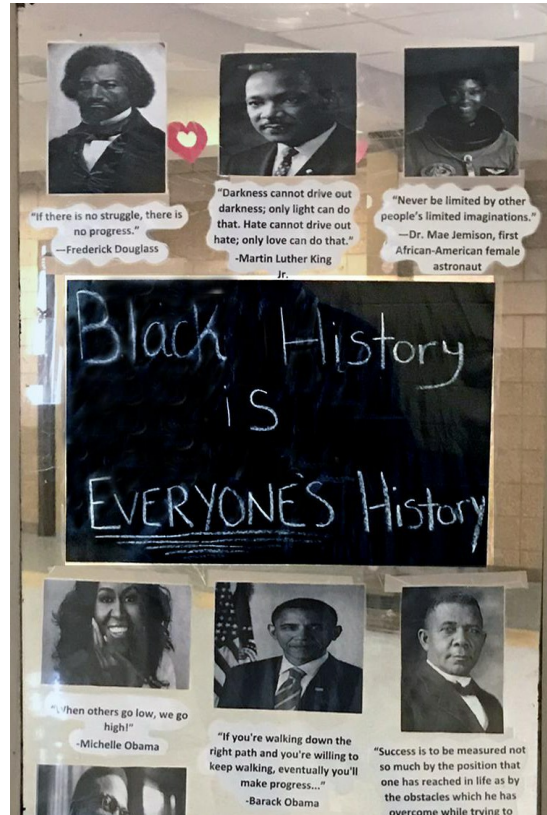 "If there is no struggle, there is
no progress."
—Frederick Douglass
"Darkness cannot drive out
darkness; only light can do
that. Hate cannot drive out
hate; only love can do that."
-Martin Luther King
Jr.
"Never be limited by other
people's limited imaginations."
—Dr. Mae Jemison, first
African-American female
astronaut
Black History
is
EVERYONE'S History
"When others go low, we go
high!"
-Michelle Obama
"If you're walking down the
right path and you're willing to
keep walking, eventually you'll
make progress..."
-Barack Obama
"Success is to be measured not
so much by the position that
one has reached in life as by
the obstacles which he has
overcome while trying to